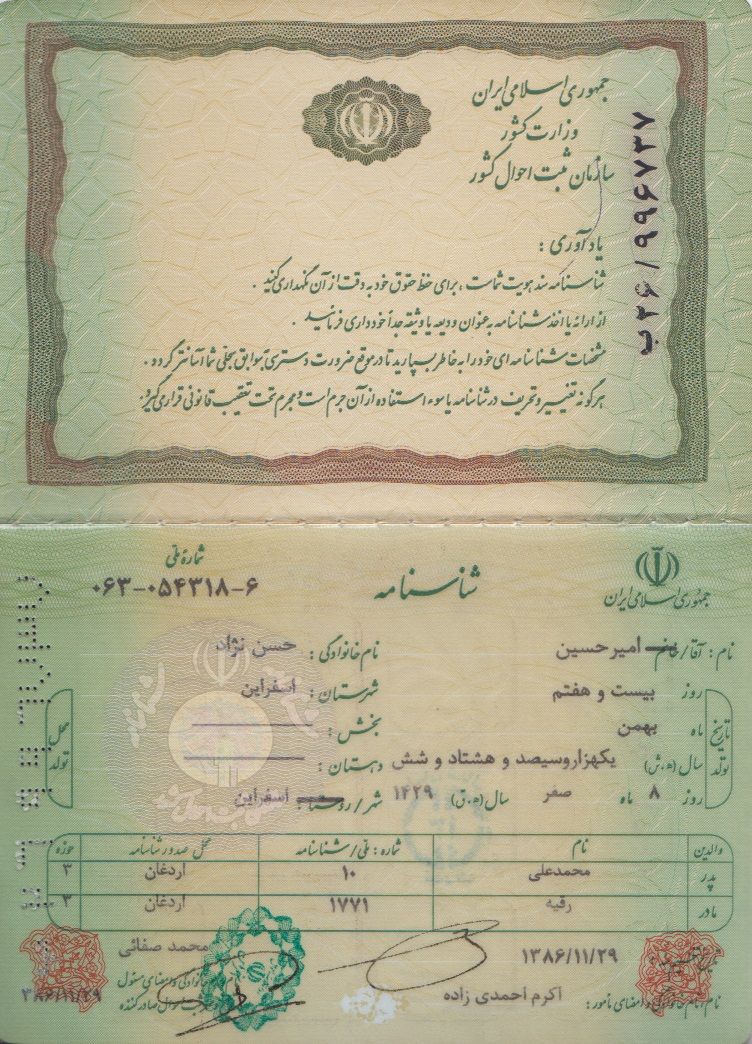 جمهوری اسلامی ایران
وزارت کشور
سازمان ثبت احوال کشور
ب۲۶/۹۹۶۷۳۷
یادآوری :
شناسنامه سند هویت شماست ، برای حفظ حقوق خود به دقت از آن نگهداری کنید .
از ارائه یا اخذ شناسنامه به عنوان ودیعه یا وثیقه جداً خودداری فرمائید .
مشخصات شناسنامه ای خود را به خاطر بسپارید تا در موقع ضرورت دسترسی به سوابق سجلی شما آسانتر گردد .
هرگونه تغییر و تحریف در شناسنامه یا سوء استفاده از آن جرم است و مجرم تحت تعقیب قانونی قرار می گیرد.
جمهوری اسلامی ایران
شناسنامه
شمارۀ ملی
۰۶۳-۰۵۴۳۱۸-۶
نام : آقا/خانم امیرحسین نام خانوادگی : حسن نژاد
تاریخ تولد
روز بیست و هفتم
ماه بهمن
سال (ه.ش) یکهزاروسیصد و هشتاد و شش
روز ۸ ماه صفر سال (ه.ق) ۱۴۲۹
محل تولد
شهرستان : اسفراین
بخش :
دهستان :
شهر/روستا : اسفراین
والدین نام شماره : ملی/شناسنامه محل صدور شناسنامه حوزه
پدر محمدعلی ۱۰ اردغان ۳
مادر رقیه ۱۷۷۱ اردغان ۳
۱۳۸۶/۱۱/۲۹
محمد صفائی
نام، نام خانوادگی و امضای مأمور : اکرم احمدی زاده
۱۳۸۶/۱۱/۲۹